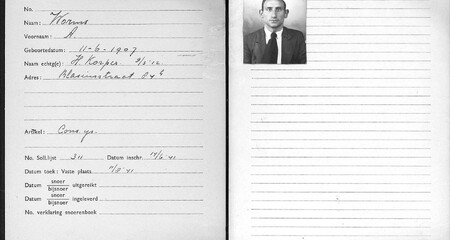 No.
Naam: Worms
Voornaam: A.
Geboortedatum: 11-6-1907
Naam echtg(e): H. Korper 9/2 '12
Adres: Blasiusstraat 84 b
Artikel: Cons. ijs.
No. Soll.lijst 311 Datum inschr. 17/6 '41
Datum toek: Vaste plaats '41
Datum snoer uitgereikt
bijsnoer
Datum snoer ingeleverd
bijsnoer
No. verklaring snoerenboek